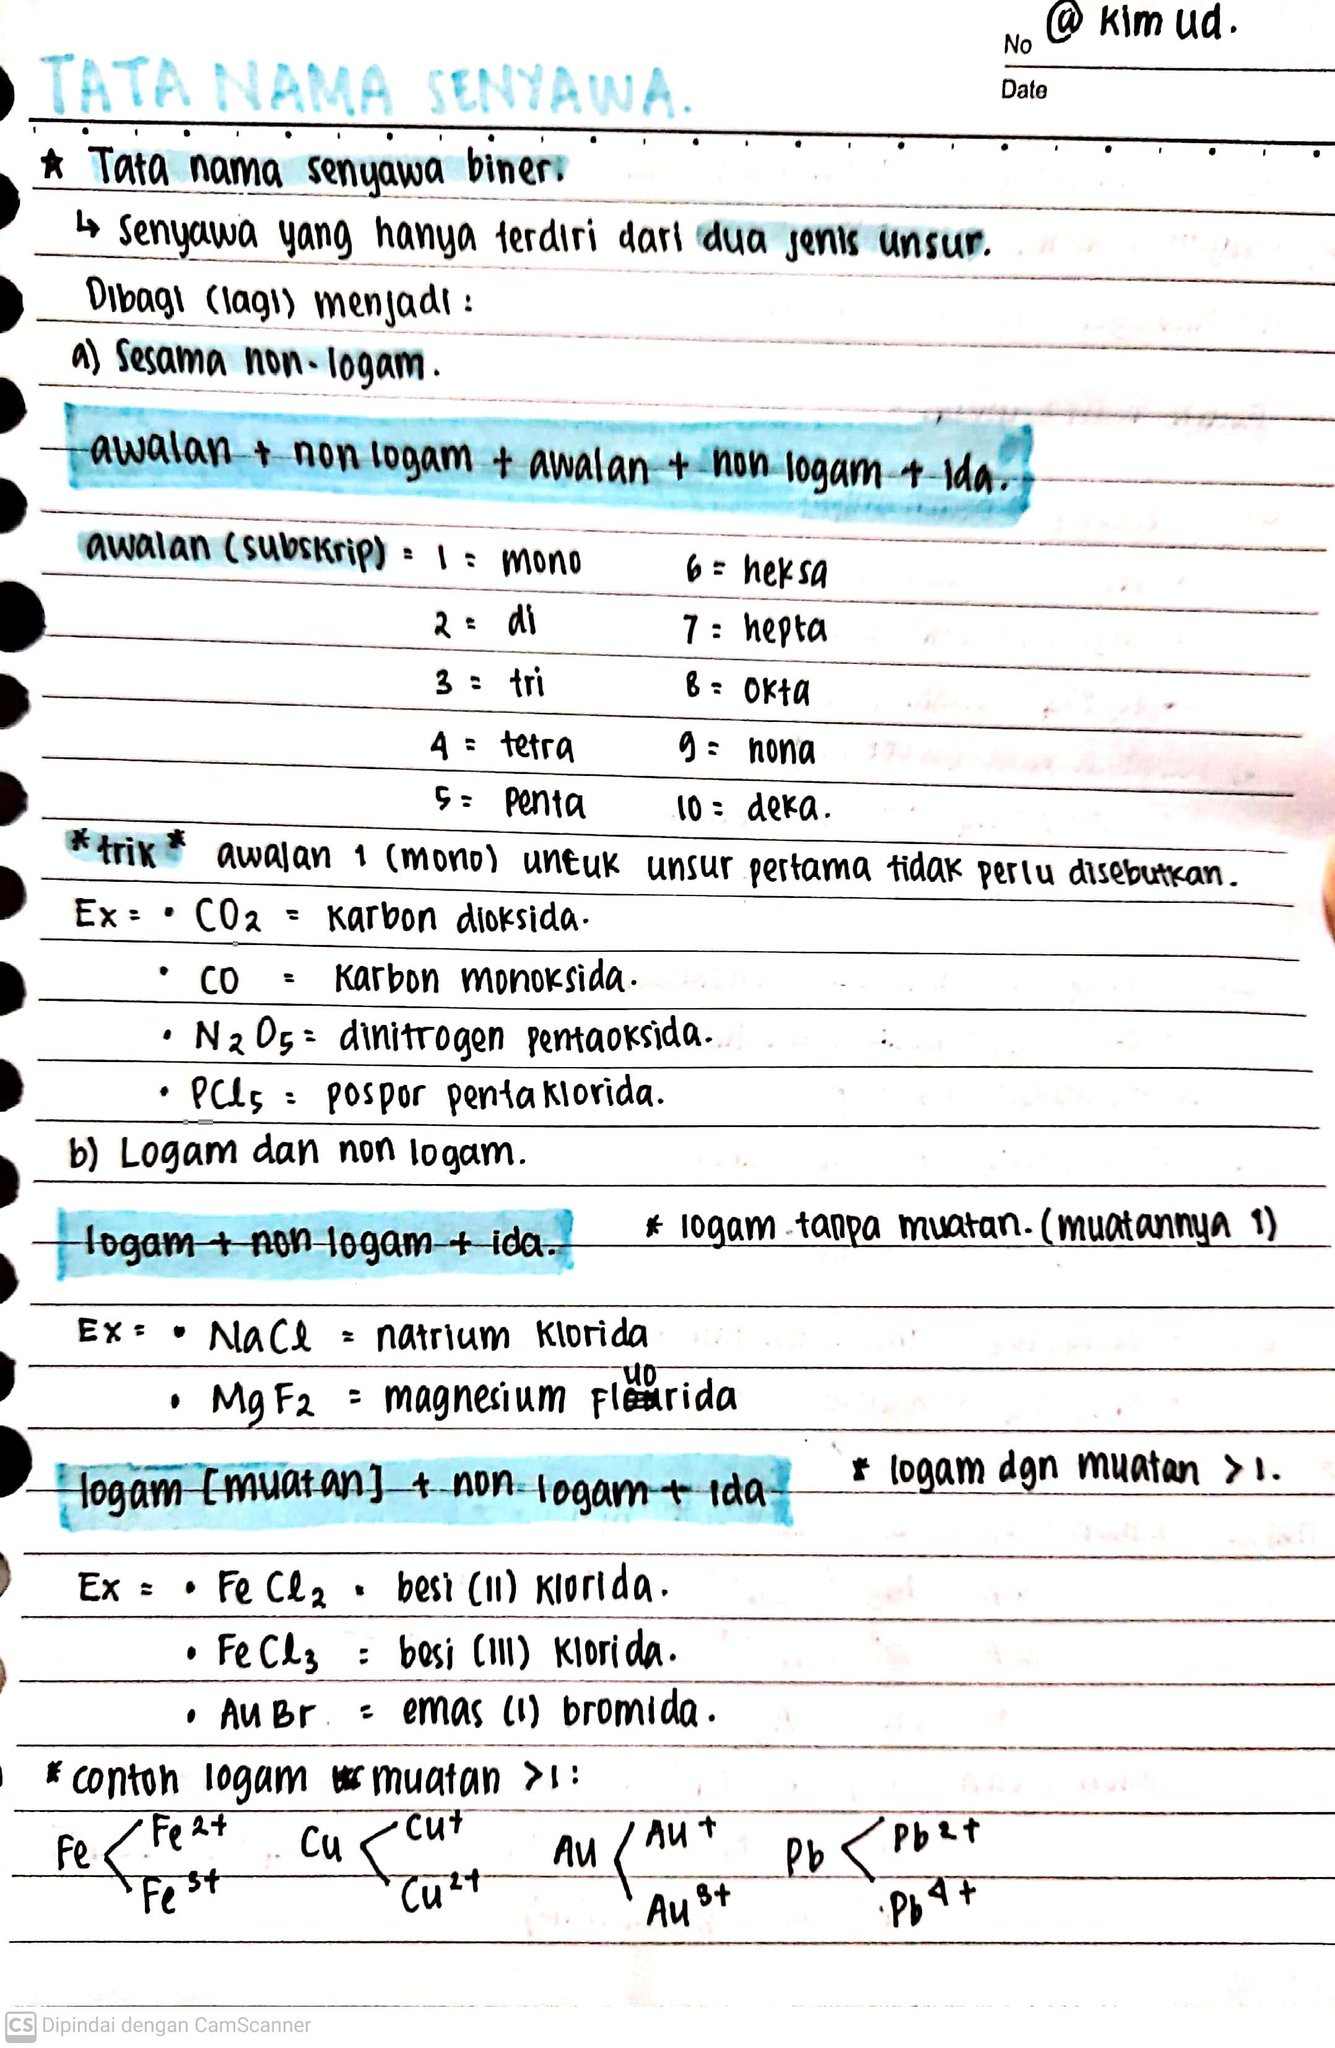 @ kim ud.
No
Date
TATA NAMA SENYAWA.
☆ Tata nama senyawa biner.
↳ senyawa yang hanya terdiri dari dua jenis unsur.
Dibagi (lagi) menjadi :
a) Sesama non-logam.
awalan + non logam + awalan + non logam + ida.
awalan (subskrip) = 1 = mono 6 = heksa
2 = di 7 = hepta
3 = tri 8 = okta
4 = tetra 9 = nona
5 = penta 10 = deka.
*trik* awalan 1 (mono) untuk unsur pertama tidak perlu disebutkan.
Ex = • CO2 = karbon dioksida.
• CO = karbon monoksida.
• N2O5 = dinitrogen pentaoksida.
• PCl5 = pospor pentaklorida.
b) Logam dan non logam.
logam + non logam + ida. * logam tanpa muatan. (muatannya 1)
Ex = • NaCl = natrium klorida
• MgF2 = magnesium Fluorida
logam [muatan] + non logam + ida * logam dgn muatan > 1.
Ex = • FeCl2 • besi (II) klorida.
• FeCl3 = besi (III) klorida.
• AuBr = emas (I) bromida.
* contoh logam muatan >1 :
Fe < Fe2+ Cu < Cu+ Au < Au+ Pb < Pb2+
Fe3+ Cu2+ Au3+ Pb4+
CS Dipindai dengan CamScanner